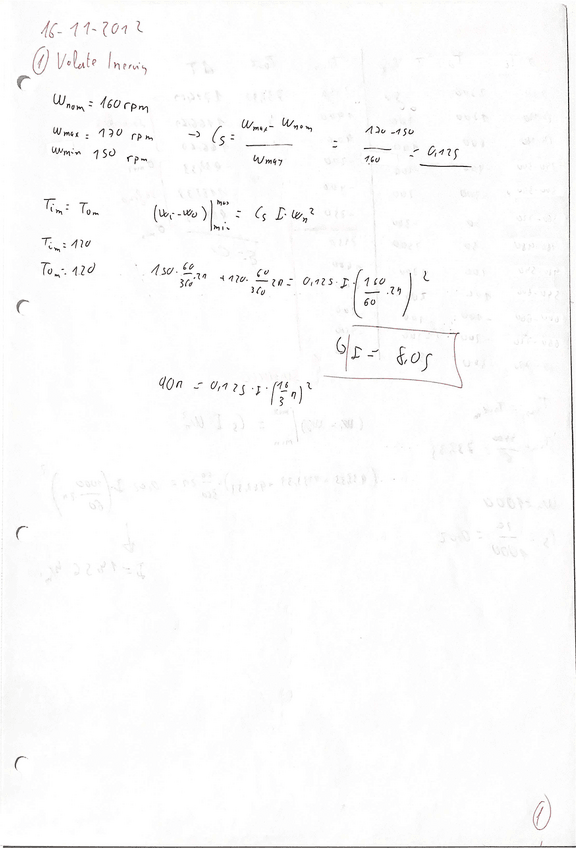 16-11-2012
① Volate Inercia
Wnom = 160 rpm
Wmax = 170 rpm → Cs = Wmax - Wnom / Wmax = 170-150 / 160 = 0,125
Wmin 150 rpm
Tim = Tom (Wi-Wo)|max min = Cs I·Wn²
Tim = 120
Tom = 120 150·60/360·2π + 120·60/360 2π = 0,125·I·(160/60·2π)²
I = 8,05
90π = 0,125·I·(16/3 π)²
①